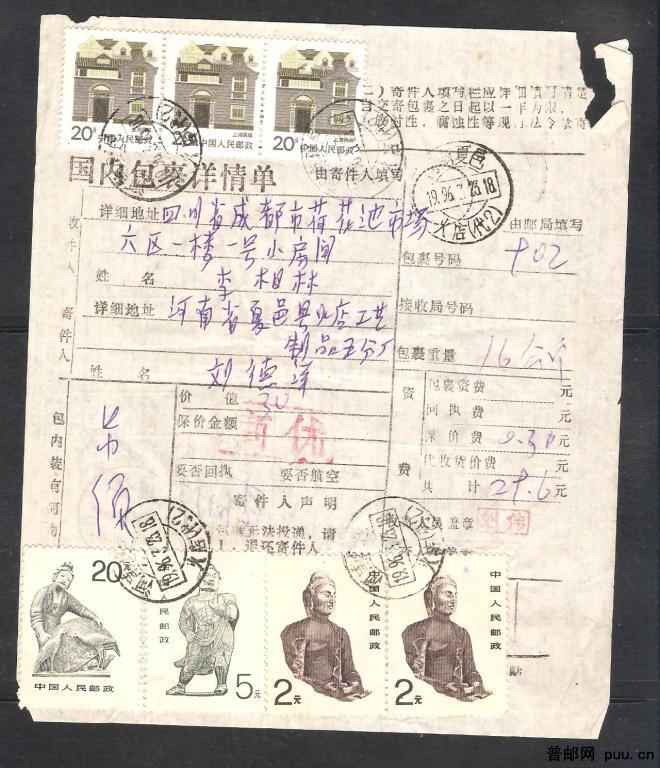 20分 中国人民邮政 上海民居
中国人民邮政 上海民居
20分 中国人民邮政 上海民居
国内包裹详情单
由寄件人填写
夏邑
19.96.7.23.18
火店(代2)
由邮局填写
收件人
详细地址 四川省成都市荷花池市场
六区一楼一号小房间
姓名 李相林
寄件人
详细地址 河南省夏邑县火店工艺
制品五分厂
姓名 刘德洋
包裹号码 902
接收局号码
包裹重量 16公斤
包内装有何物
价值 30
保价金额
要否回执 要否航空
寄件人声明
包裹无法投递,请
1.退还寄件人
资费
包裹资费 元
回执费 元
保价费 0.30元
代收货价费 元
共计 29.6元
盖章
20 中国人民邮政
5元
中国人民邮政 2元
中国人民邮政 2元
贴
普邮网 puu.cn